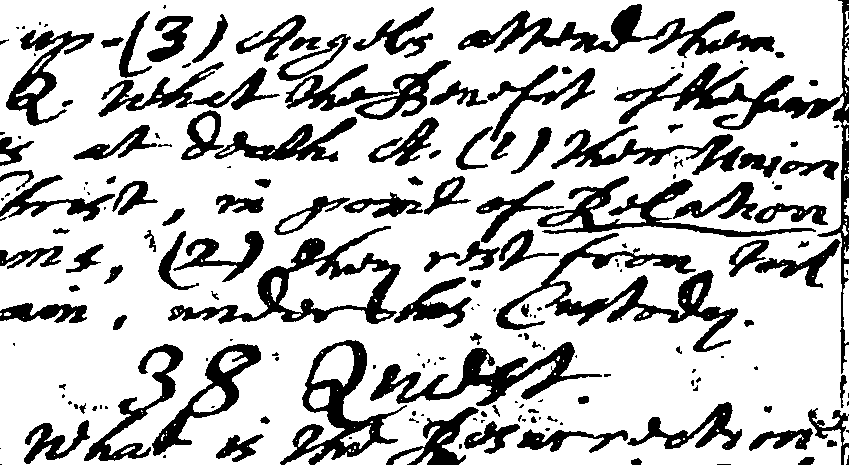 up - (3) Angels attend them.
Q. What the Benefit of the
at death. A. (1) their Union
Christ, in point of Relation
(2) they rest from Toil
under this Custody.
38 Quest
What is the Resurrection.